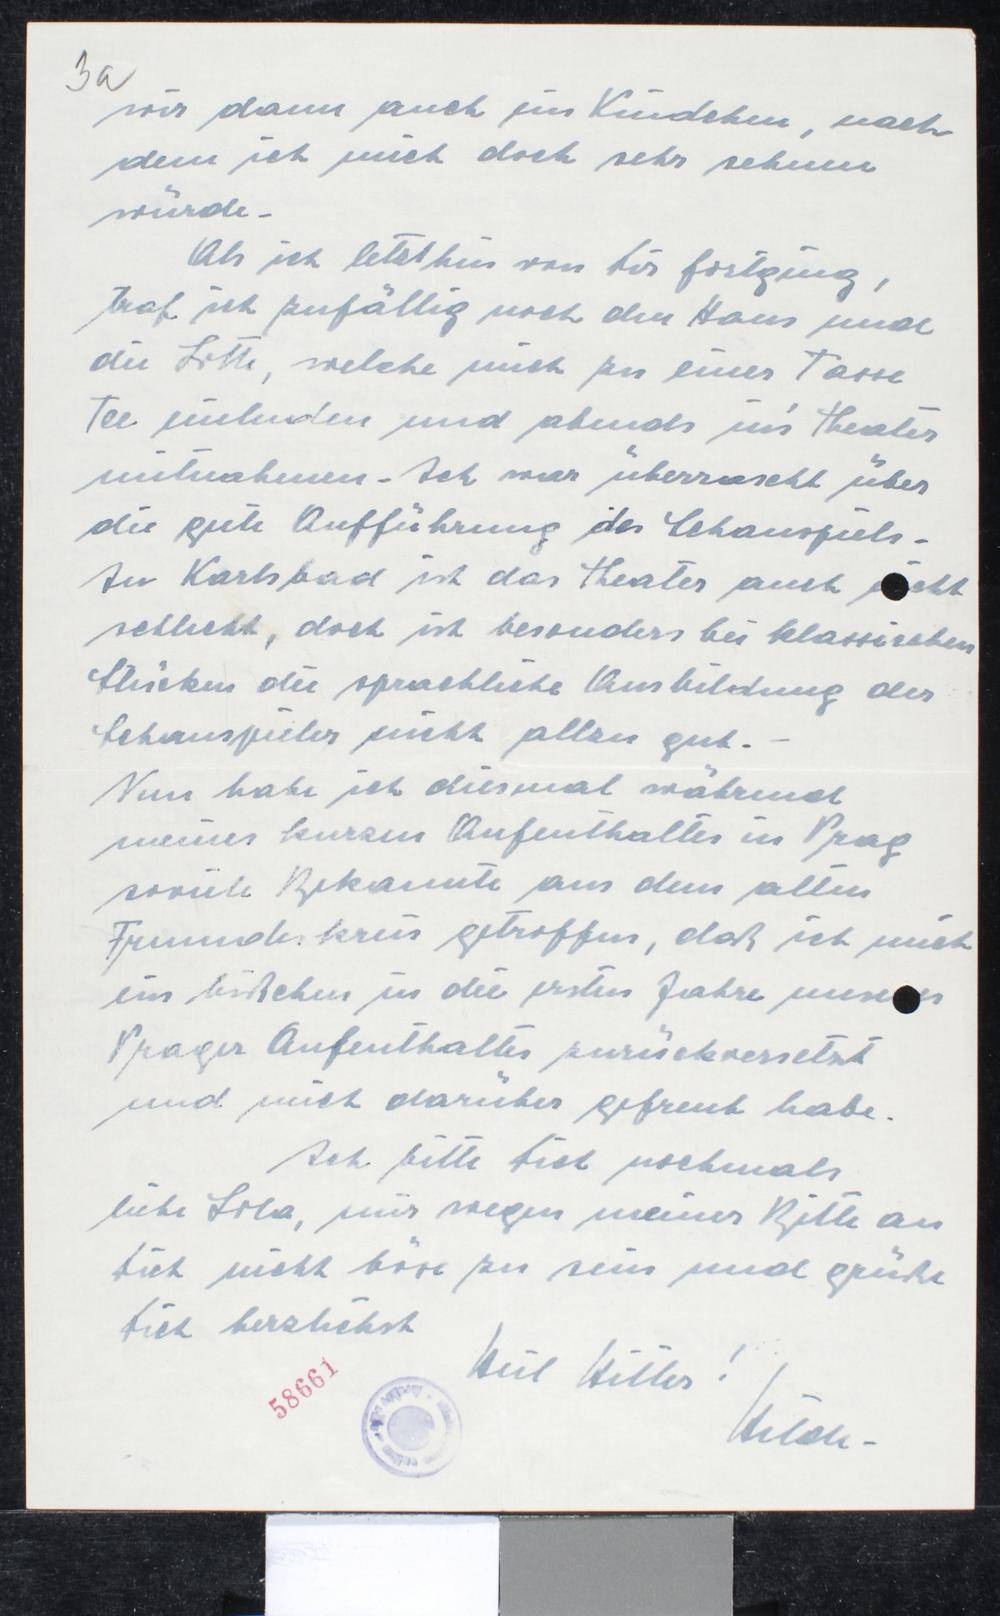 3a
wir dann auch ein Kindchen, nach
dem ich mich doch sehr sehnen
würde-
Als ich letzthin von Dir fortging,
traf ich zufällig noch den Hans und
die Lotte, welche mich zu einer Tasse
Tee einluden und abends in's Theater
mitnahmen - Ich war überrascht über
die gute Aufführung des Schauspiels -
In Karlsbad ist das Theater auch nicht
schlecht, doch ist besonders bei klassischen
Stücken die sprachliche Ausbildung der
Schauspieler nicht allzu gut. -
Nun habe ich diesmal während
meines kurzen Aufenthaltes in Prag
soviele Bekannte aus dem alten
Freundeskreis getroffen, daß ich mich
ein bißchen in die ersten Jahre unseres
Prager Aufenthaltes zurückversetzt
und mich darüber gefreut habe.
Ich bitte Dich nochmals
liebe Lola, mir wegen meiner Bitte an
Dich nicht böse zu sein und grüße
Dich herzlichst
Heil Hitler!
Hilde-
58661